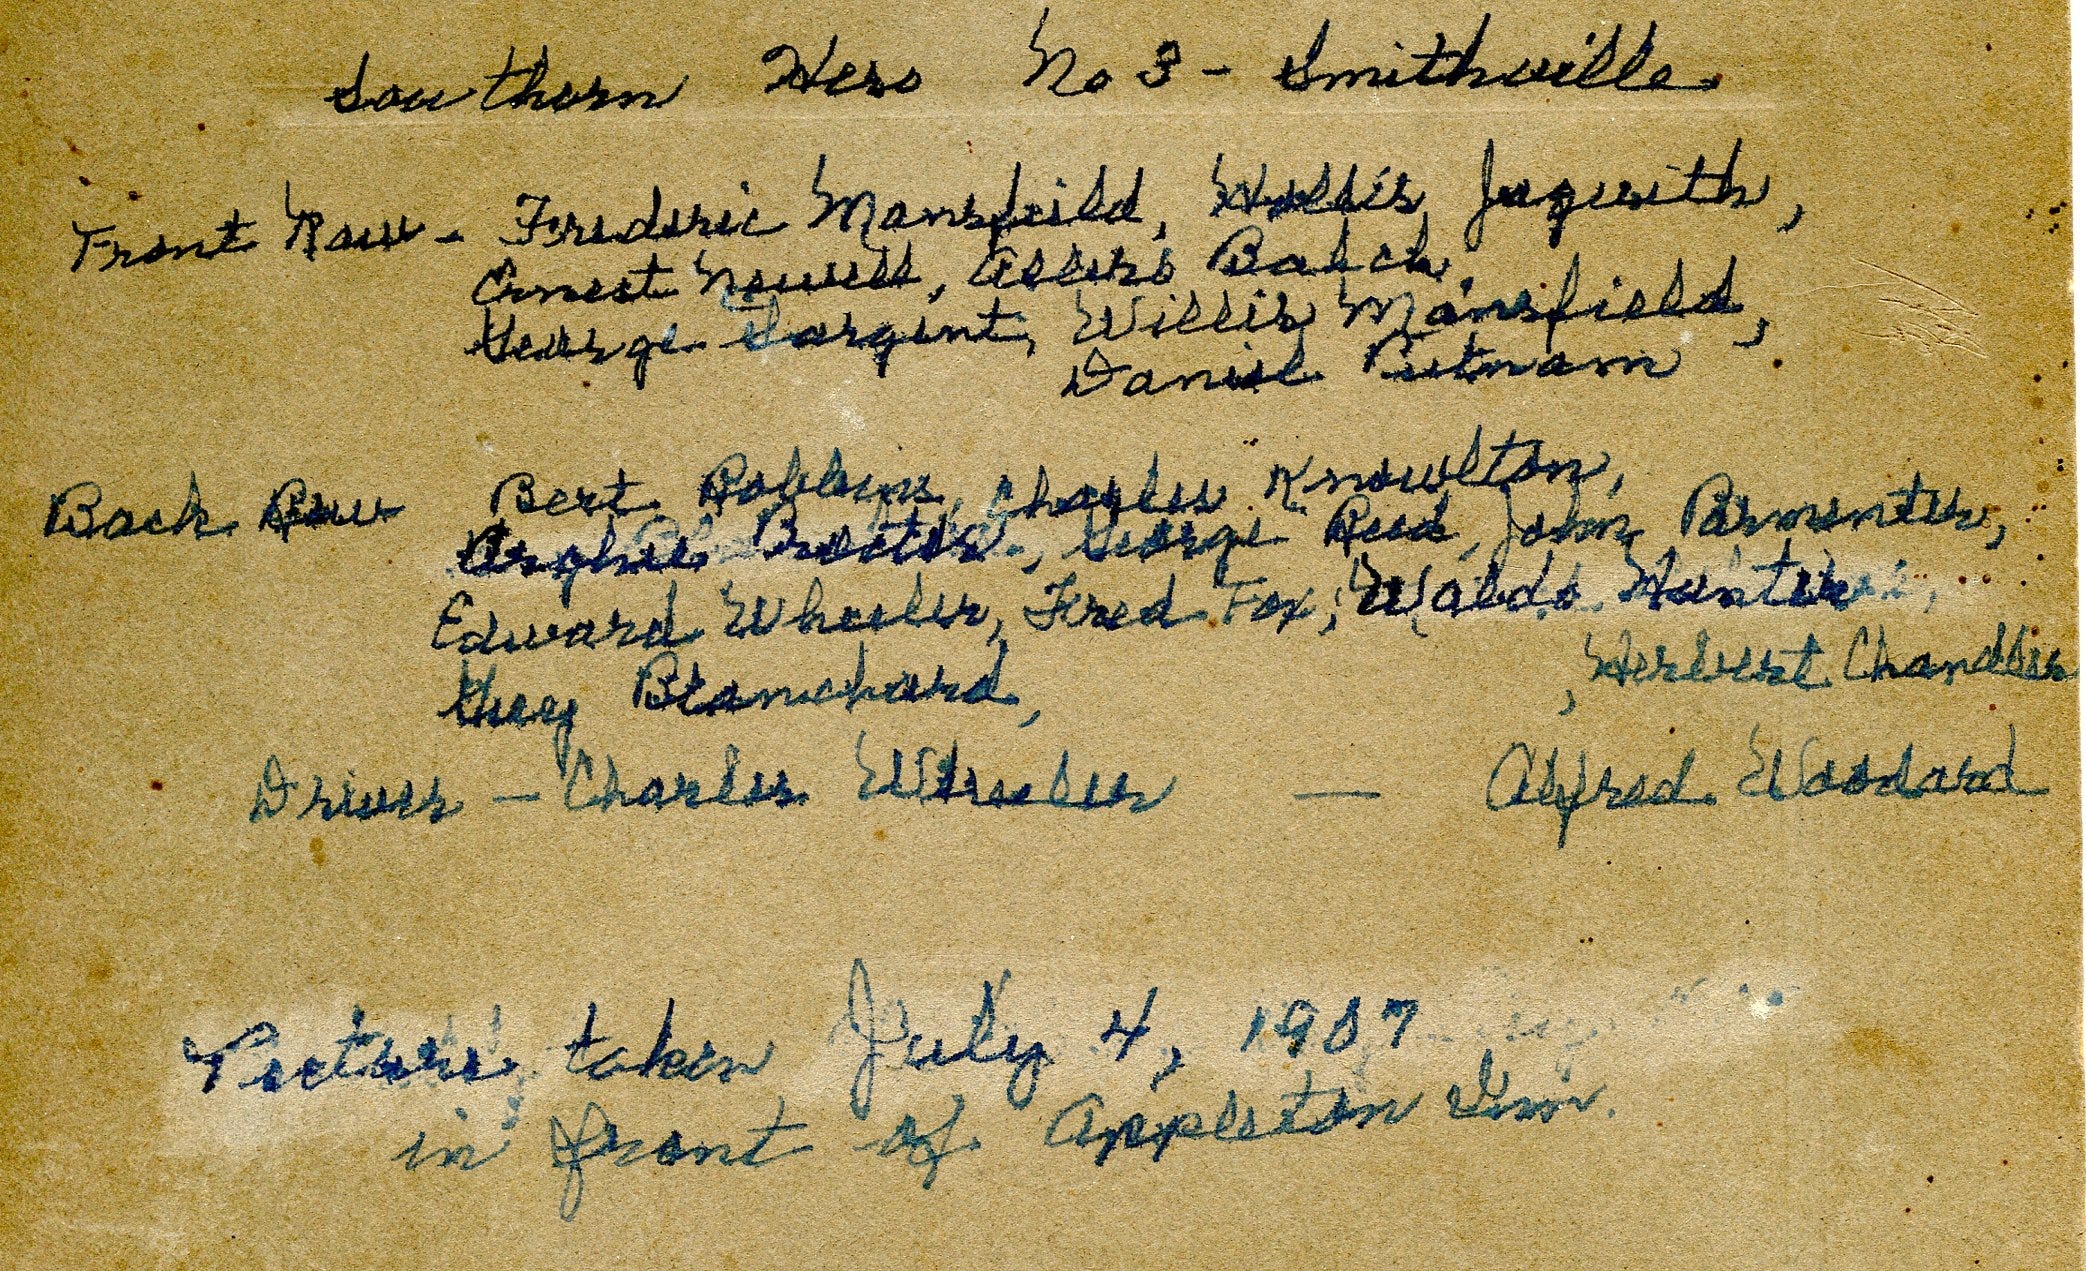 Southern Hero No 3 - Smithville
Front Row - Frederic Mansfeild, Hollis Jaquith,
Ernest Newell, Albert Balch,
George Sargent, Willis Mansfield,
Daniel Putnam
Back Row Bert Robbins, Charles Knowlton,
Archie Proctor, George Reed, John Parmenter,
Edward Wheeler, Fred Fox, Waldo Hunter,
Guy Blanchard, , Herbert Chandler
Driver - Charles Wheeler — Alfred Woodard
Picture taken July 4, 1907
in front of Appleton Inn.